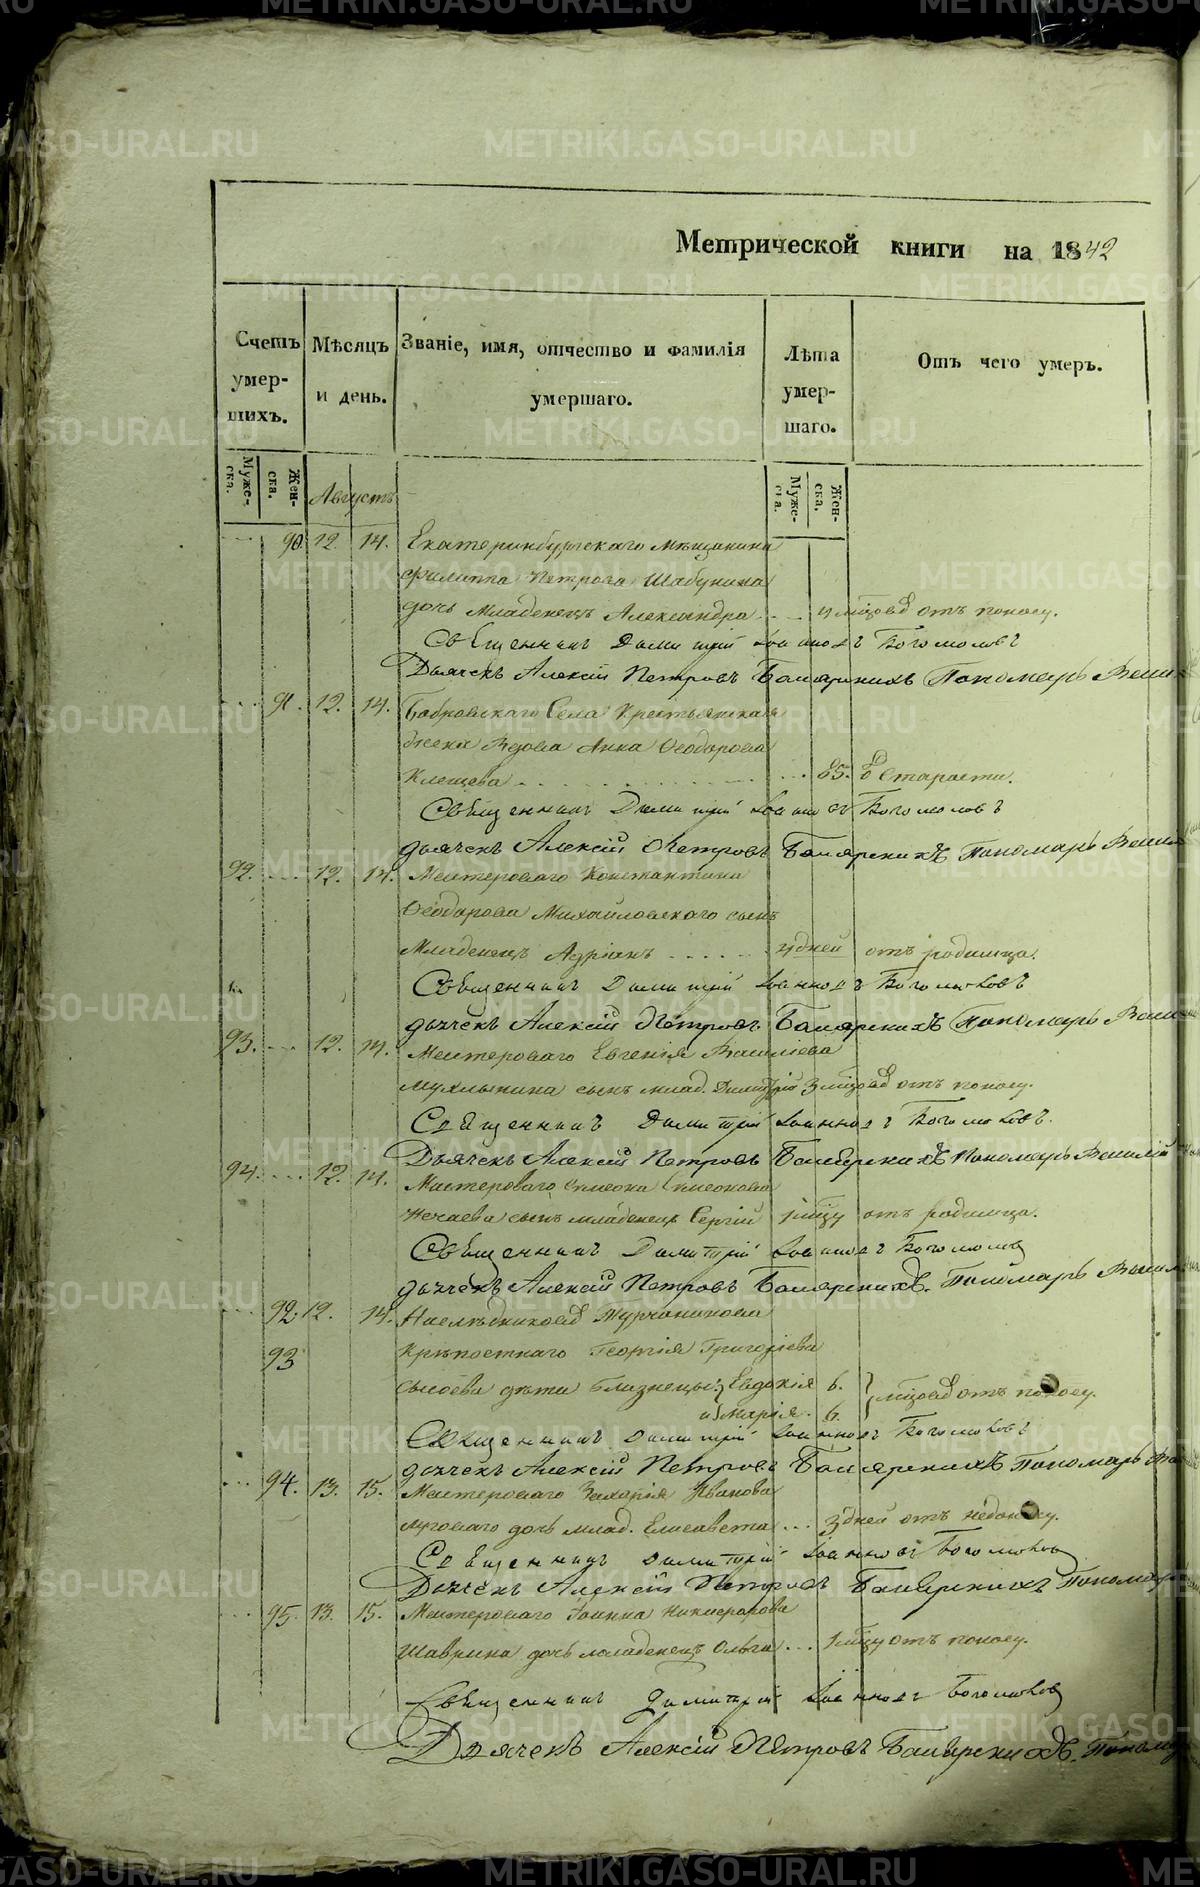 Метрической книги на 1842
Счетъ умер-шихъ.
Мѣсяцъ и день.
Званіе, имя, отчество и фамилія умершаго.
Лѣта умер-шаго.
Отъ чего умеръ.
Муже-ска.
Жен-ска.
Муже-ска.
Жен-ска.
Августъ
90 12. 14. Екатеринбургскаго Мѣщанина
Филиппа Петрова Шабунина
дочь Младенецъ Александра 4 мѣсяцовъ отъ поносу.
Священникъ Димитрій Іоанновъ Богомоловъ
Дьячекъ Алексій Петровъ Пономарь
91. 12. 14. Бобровскаго Села Крестьянская
жена Вдова Анна Ѳеодорова
Клещева 85. въ старости.
Священникъ Димитрій Іоанновъ Богомоловъ
дьячекъ Алексій Петровъ Пономарь
92. 12. 14. Мастероваго Константина
Ѳеодорова Михайловскаго сынъ
Младенецъ Адріанъ 4 дней отъ родимца.
Священникъ Димитрій Іоанновъ Богомоловъ
дьячекъ Алексій Петровъ Пономарь
93. 12. 14. Мастероваго Евгенія Василіева
Мухлынина сынъ млад. Димитрій 3 отъ поносу.
Священникъ Димитрій Іоанновъ Богомоловъ.
Дьячекъ Алексій Петровъ Пономарь Василій
94. 12. 14. Мастероваго Симеона Симеонова
Нечаева сынъ младенецъ Сергій 1 мѣсяцу отъ родимца.
Священникъ Димитрій Іоанновъ Богомоловъ
дьячекъ Алексій Петровъ Пономарь
92. 12. 14. Наслѣдниковъ Турчанинова
93 Крѣпостнаго Георгія Григоріева
Сысоева дѣти близнецы: Евдокія 6. отъ поносу.
и Марія. 6.
Священникъ Димитрій Іоанновъ Богомоловъ
дьячекъ Алексій Петровъ Пономарь
94. 13. 15. Мастероваго Захарія Иванова
дочь млад. Елисавета 3 дней отъ
Священникъ Димитрій Іоанновъ Богомоловъ
Дьячекъ Алексій Петровъ Пономарь
95. 13. 15. Мастероваго Іоанна Никифорова
Шаврина дочь младенецъ Ольга 1 мѣсяцу отъ поносу.
Священникъ Димитрій Іоанновъ Богомоловъ
Дьячекъ Алексій Петровъ
METRIKI.GASO-URAL.RU